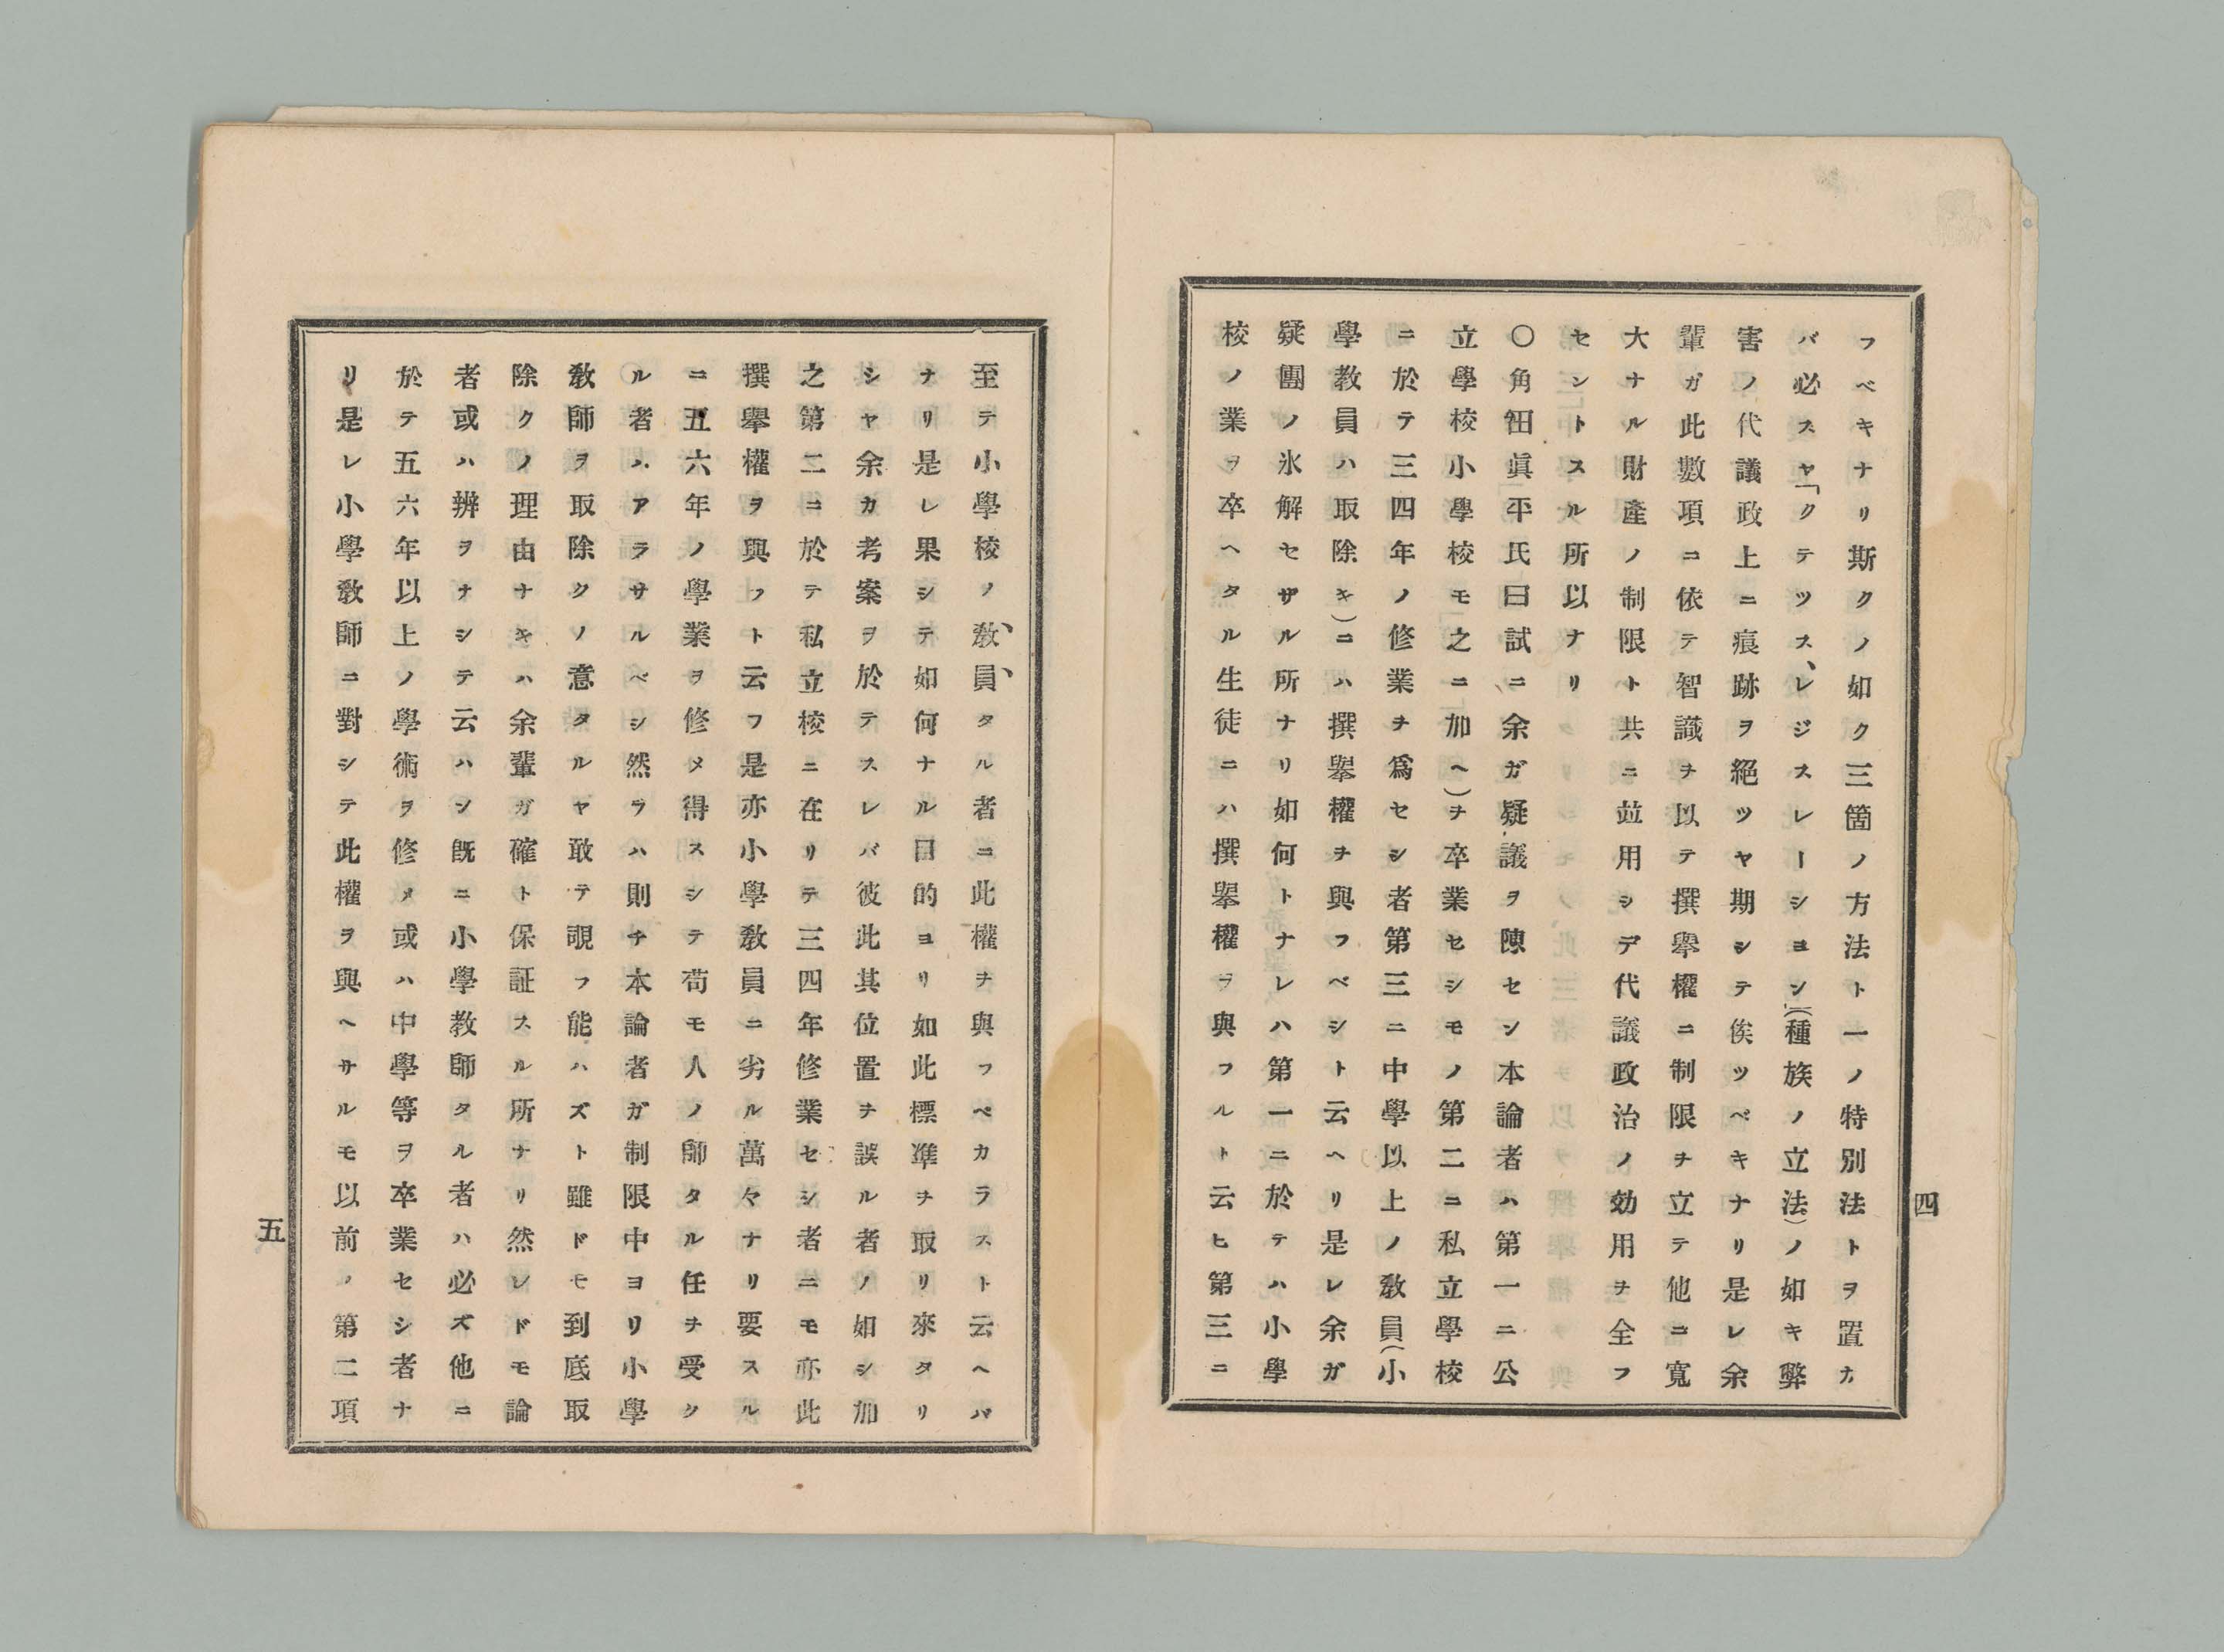 フベキナリ斯クノ如ク三箇ノ方法ト一ノ特別法トヲ置カ
バ必スヤ「クテツス、レジスレーシヨン」(種族ノ立法)ノ如キ弊
害ノ代議政上ニ痕跡ヲ絕ツヤ期シテ俟ツベキナリ是レ余
輩ガ此數項ニ依テ智識ヲ以テ撰擧權ニ制限ヲ立テ他ニ寬
大ナル財產ノ制限ト共ニ竝用シデ代議政治ノ効用ヲ全フ
セントスル所以ナリ
〇角田眞平氏曰試ニ余ガ疑議ヲ陳セン本論者ハ第一ニ公
立學校小學校モ之ニ加ヘ)ヲ卒業セシモノ第二ニ私立學校
ニ於テ三四年ノ修業ヲ爲セシ者第三ニ中學以上ノ敎員(小
學教員ハ取除キ)ニハ撰擧權ヲ與フベシト云ヘリ是レ余ガ
疑團ノ氷解セザル所ナリ如何トナレハ第一ニ於テハ小學
校ノ業ヲ卒ヘタル生徒ニハ撰擧權ヲ與フルト云ヒ第三ニ
四
至テ小學校ノ敎、員、タル者ニ此權ヲ與フベカラスト云ヘバ
ナリ是レ果シテ如何ナル目的ヨリ如此標準ヲ取リ來タリ
シヤ余カ考案ヲ於テスレバ彼此其位置ヲ誤ル者ノ如シ加
之第二ニ於テ私立校ニ在リテ三四年修業セシ者ニモ亦此
撰擧權ヲ與フト云フ是亦小學敎員ニ劣ル萬々ナリ要スル
ニ五六年ノ學業ヲ修メ得スシテ苟モ人ノ師タル任ヲ受ク
ル者ハアラサルベシ然ラハ則チ本論者ガ制限中ヨリ小學
敎師ヲ取除クノ意タルヤ敢テ覗フ能ハズト雖ドモ到底取
除クノ理由ナキハ余輩ガ確ト保証スル所ナリ然レドモ論
者或ハ辨ヲナシテ云ハン既ニ小學教師タル者ハ必ズ他ニ
於テ五六年以上ノ學術ヲ修メ或ハ中學等ヲ卒業セシ者ナ
リ是レ小學敎師ニ對シテ此權ヲ與ヘサルモ以前ノ第二項
五